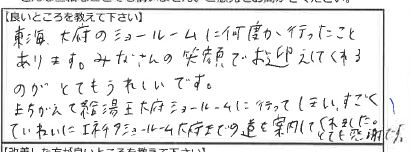 【良いところを教えて下さい】
東海、大府のショールームに何度か行ったこと
あります。みなさんの笑顔でお迎えしてくれる
のがとてもうれしいです。
まちがえて給湯王大府ショールームに行ってしまい、すごく
ていねいにエネチタショールーム大府までの道を案内してくれました。
とても感謝です。
【改善した方が良いところを教えて下さい】